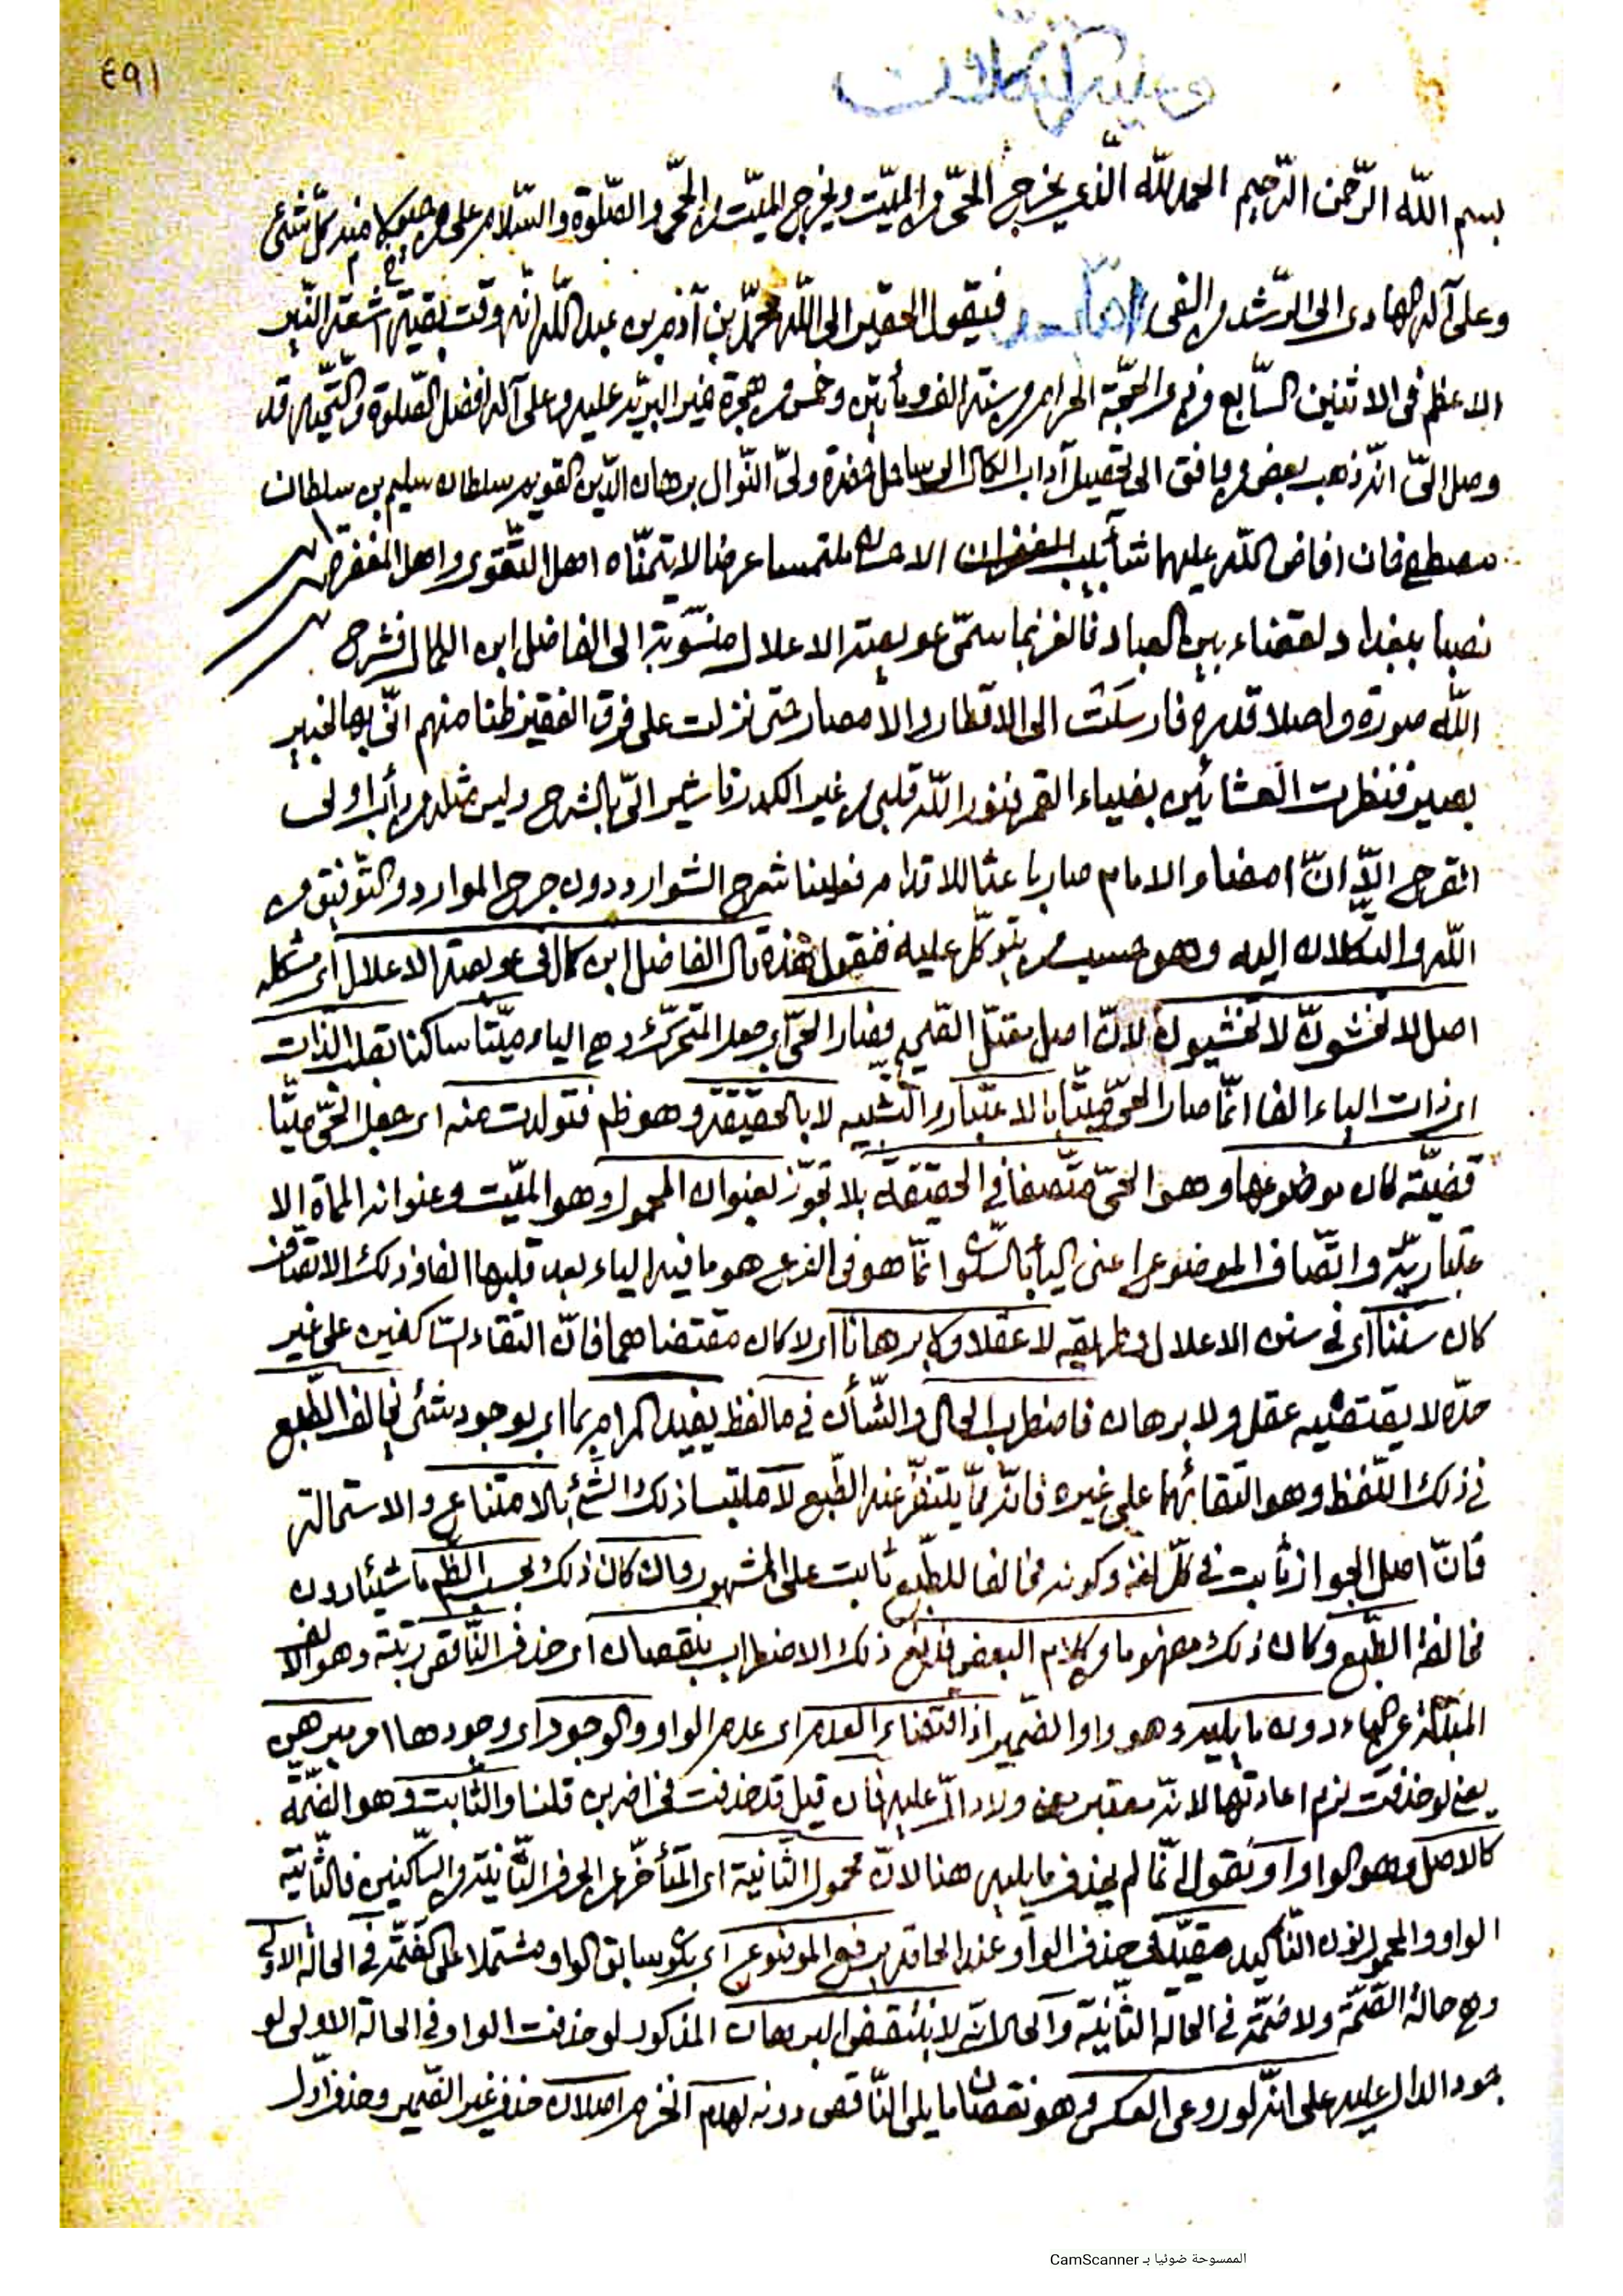 ٤٩١
بسم الله الرّحمن الرّحيم الحمد للّه الّذي يخرج الحيّ من الميّت ويخرج الميّت من الحيّ والصّلوة والسّلام على من كلّ شئ
وعلى آله الهادى الى الرّشد من الغى امّا بعد فيقول الحقير الى اللّه محمّد بن آدم بن عبد اللّه انّه وقت بقيّة اشعة النّير
الاعظم فى الاثنين السّابع من ذى الحجّة الحرام من سنة الف ومأتين وخمس من هجرة خير البريّة عليه وعلى آله افضل الصّلوة والتّحيّة قد
وصل الىّ انّه ذهب بعض من رافق الى تحصيل آداب الكمال الى ساحل ولىّ النّوال برهان الدّين القويم سلطان سليم بن سلطان
مصطفى خان افاض اللّه عليهما شآبيب الغفران ملتمسا عرضا لا يتمنّاه اهل التّقوى واهل المغفرة
نصبا ببغداد لقضاء بين العباد سمّى عويصة الاعلال منسوبة الى الفاضل ابن الكمال فشرح
اللّه صدره واصلا قدره فارسلت الى الاقطار والامصار حتى نزلت على فرق الفقير ظنا منهم انّى بها لخبير
بصير فنظرت العشائين بضياء القمر فنوّر اللّه قلبى من غير الكدر فاشير الىّ بالشرح وليس مثله من اولى
القرح الّا انّ امضاء الامام صار باعثا للاقدام فعلينا شرح الشوارد دون جرح الموارد والتّوفيق من
اللّه والتكلان اليه وهو حسيب من يتوكّل عليه فنقول قال الفاضل ابن كمال فى عويصة الاعلال اى مشكله
اصل لا تخشونّ لا تخشيون لانّ اصل معتلّ فصار الحىّ اى حرف المتحرّك وهى الياء ميّتا ساكنا بقلب الذّات
اى ذات الياء الفا انّما صار الحىّ ميّتا بالاعتبار والتّشبيه لا بالحقيقة وهو ظم فتولدت منه اى جعل الحىّ ميّتا
قضيّة كان موضوعها وهو الحىّ متّصفا فى الحقيقة بلا تجوّز بعنوان المحمول وهو الميّت وعنوانه المأة الا
عتباريّة واتّصاف الموضوع اعنى الياء بالسّكون انّما هو فى الفرع هو ما فيه الياء بعد قلبها الفا وذلك الاتّصاف
كان سننا اى فى سنن الاعلال وطريقه لا عقلا ولا برهانا اى لا كان مقتضاهما فانّ التقاء السّاكنين على غير
حدّه لا يقتضيه عقل ولا برهان فاضطرب الحال والشّأن فى ما لفظ يفيد المرام بما اى بوجود شئ يخالف الطّبع
فى ذلك التلفظ وهو التقائهما على غيره فانّه ممّا يتنفّر عنه الطّبع لا ملتبسا ذلك الشّئ بالامتناع والاستحالة
فانّ اصل الجواز ثابت فى كلّ لغة وكونه مخالفا للطّبع ثابت على المشهور وان كان ذلك بحسب الظم ما شيئا دون
مخالفة الطّبع وكان ذلك مفهوما من كلام البعض فدفع ذلك الاضطراب بنقصان اى حذف النّاقص رتبة وهو الالف
المبدلة عن الياء دون ما يليه وهو واو الضّمير اذ اقتضاء العدم اى عدم الواو والوجود اى وجودها امر مبرهن
يعنى لو حذفت لزم اعادتها لانّه معتبر معه ولا دالّ عليه فان قيل قد حذفت فى اضربن قلنا والثّابت وهو الضّمّة
كالاصل وهو الواو او نقول انّما لم يحذف ما يليه هنا لانّ محمول الثّانية اى المتأخّر عن الحرف الثّانية من السّاكنين فالثّانية
الواو والمحمول نون التّأكيد مقيّد حذف الواو عند الحاقه برفع الموضوع اى بكون سابق الواو مشتملا على ضمّة فى الحالة الاولى
وهى حالة الضّمّة ولا ضمّة فى الحالة الثّانية والحال انّه لا ينتقض البرهان المذكور لو حذفت الواو فى الحالة الاولى لو
جود الدال عليه على انّه لو روعى العكس وهو نقصان ما يلى النّاقص دونه لعدم انخرم اصلان حذف غير الضّمير وحذف اوّل
الممسوحة ضوئيا بـ CamScanner